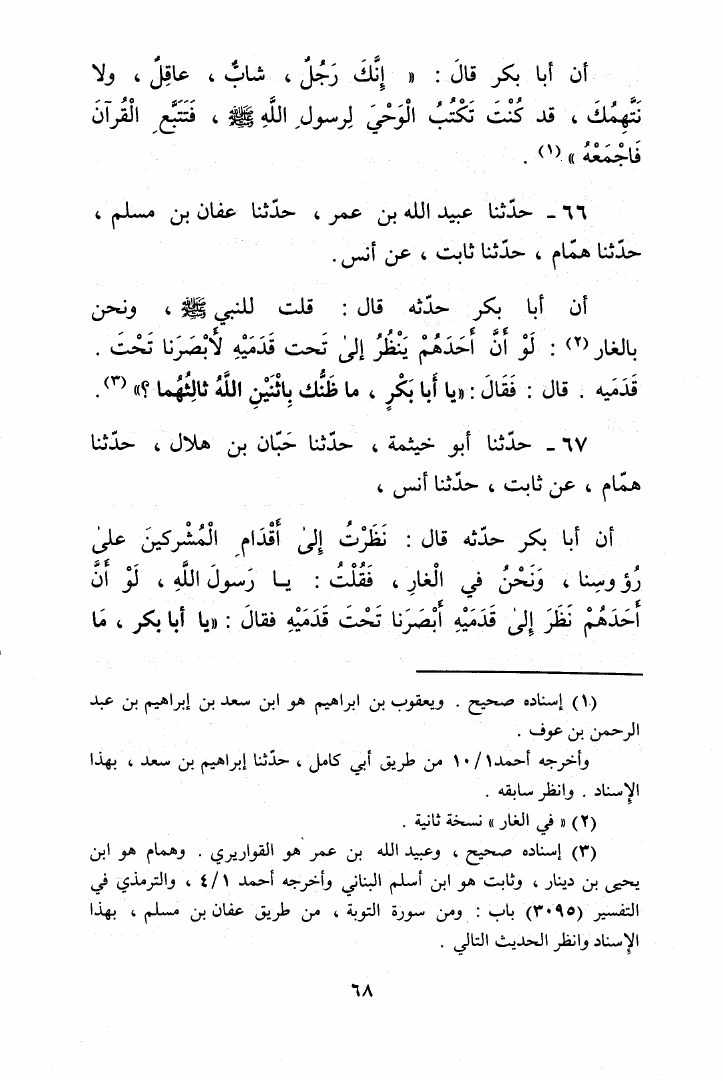 أن أبا بكر قالَ : « إِنَّكَ رَجُلٌ ، شابٌّ ، عاقِلٌ ، ولا
نَتَّهِمُكَ ، قد كُنْتَ تَكْتُبُ الْوَحْيَ لِرسولِ اللَّهِ ﷺ ، فَتَتَبَّعِ الْقُرآنَ
فَاجْمَعْهُ » (١) .
٦٦ ـ حدّثنا عبيد الله بن عمر ، حدّثنا عفان بن مسلم ،
حدّثنا همّام ، حدّثنا ثابت ، عن أنس .
أن أبا بكر حدّثه قال : قلت للنبي ﷺ ، ونحن
بالغار (٢) : لَوْ أَنَّ أَحَدَهُمْ يَنْظُرُ إلىٰ تَحت قَدَمَيْهِ لأَبْصَرَنا تَحْتَ .
قَدَمَيه . قال : فَقَالَ : «يا أَبا بَكْرٍ ، ما ظَنُّك بِاثْنَيْنِ اللَّهُ ثالِثُهُما ؟» (٣) .
٦٧ ـ حدّثنا أبو خيثمة ، حدّثنا حَبّان بن هلال ، حدّثنا
همّام ، عن ثابت ، حدّثنا أنس ،
أن أبا بكر حدّثه قال : نَظَرْتُ إِلىٰ أَقْدَامِ الْمُشْركينَ علىٰ
رُؤوسِنا ، وَنَحْنُ في الْغارِ ، فَقُلْتُ : يـا رَسولَ اللَّهِ ، لَوْ أَنَّ
أَحَدَهُمْ نَظَرَ إِلىٰ قَدَمَيْهِ أَبْصَرَنا تَحْتَ قَدَمَيْهِ فقالَ : «يا أبا بكر ، مَا
(١) إسناده صحيح . ويعقوب بن ابراهيم هو ابن سعد بن إبراهيم بن عبد
الرحمن بن عوف .
وأخرجه أحمد ١/ ١٠ من طريق أبي كامل ، حدّثنا إبراهيم بن سعد ، بهذا
الإسناد . وانظر سابقه .
(٢) « في الغار » نسخة ثانية .
(٣) إسناده صحيح ، وعبيد الله بن عمر هو القواريري . وهمام هو ابن
يحيى بن دينار ، وثابت هو ابن أسلم البناني وأخرجه أحمد ١/ ٤ ، والترمذي في
التفسير (٣٠٩٥) باب : ومن سورة التوبة ، من طريق عفان بن مسلم ، بهذا
الإسناد وانظر الحديث التالي .
٦٨